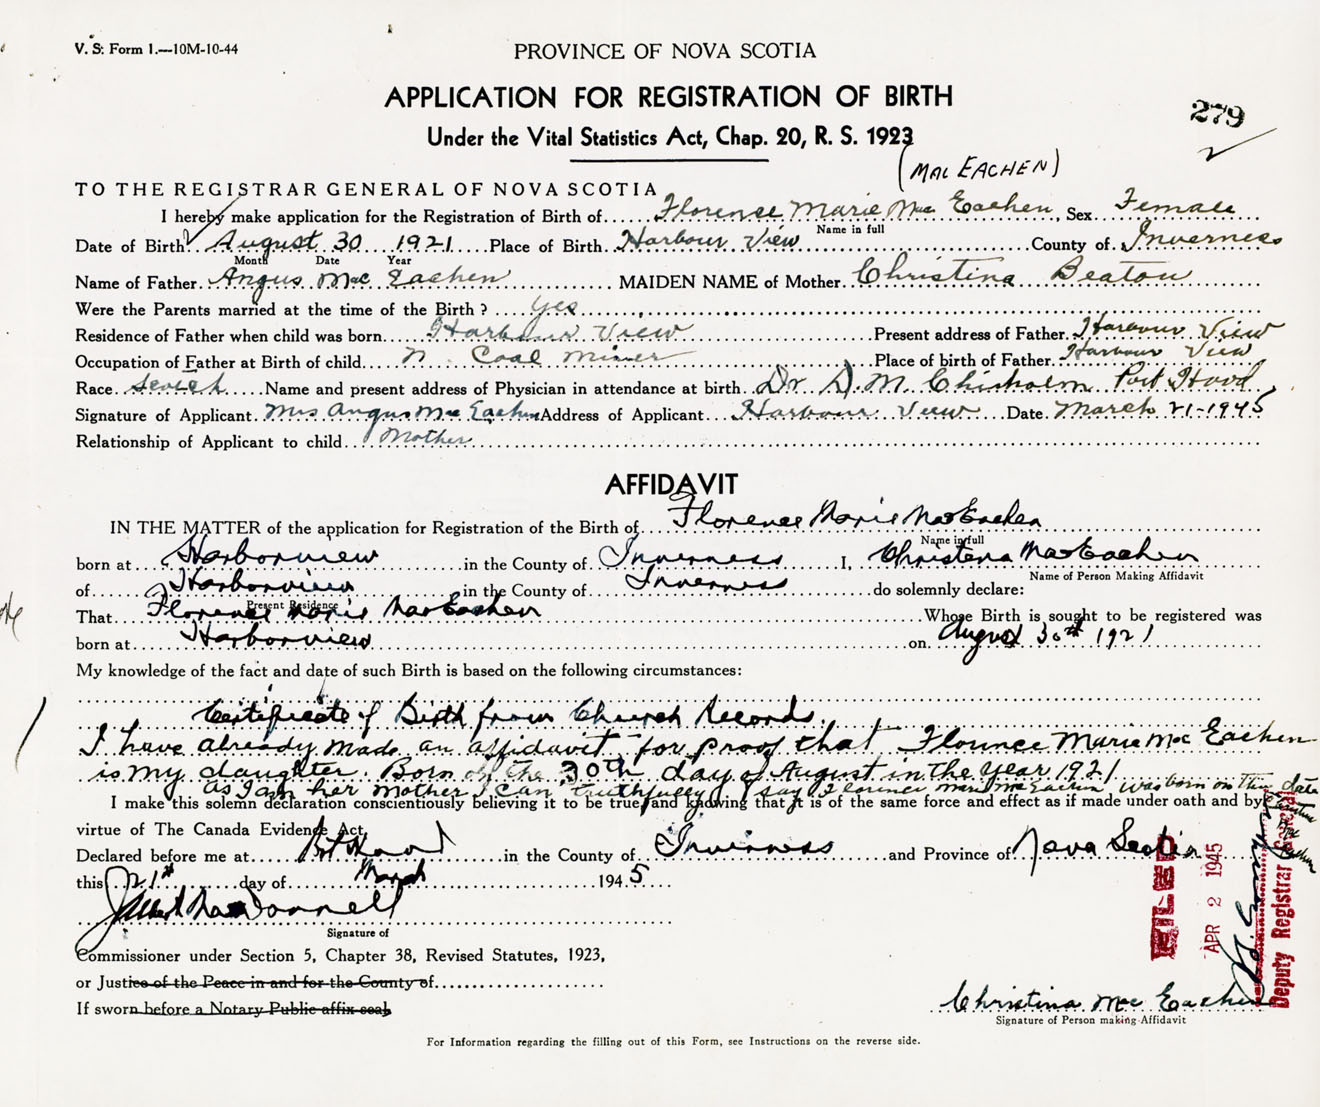 V. S. Form 1.—10M-10-44
PROVINCE OF NOVA SCOTIA
APPLICATION FOR REGISTRATION OF BIRTH
279
Under the Vital Statistics Act, Chap. 20, R. S. 1923
(MAC EACHEN)
TO THE REGISTRAR GENERAL OF NOVA SCOTIA
I hereby make application for the Registration of Birth of Florence Marie Mac Eachen, Sex Female
Name in full
Date of Birth August 30 1921 Place of Birth Harbour View County of Inverness
Month Date Year
Name of Father Angus Mac Eachen MAIDEN NAME of Mother Christina Beaton
Were the Parents married at the time of the Birth? yes
Residence of Father when child was born Harbour View Present address of Father Harbour View
Occupation of Father at Birth of child Coal Miner Place of birth of Father Harbour View
Race Scotch Name and present address of Physician in attendance at birth Dr. D. M. Chisholm Port Hood
Signature of Applicant Mrs Angus Mac Eachen Address of Applicant Harbour View Date March 21-1945
Relationship of Applicant to child Mother
AFFIDAVIT
IN THE MATTER of the application for Registration of the Birth of Florence Marie MacEachen
Name in full
born at Harborview in the County of Inverness I, Christena MacEachen
Name of Person Making Affidavit
of Harborview in the County of Inverness do solemnly declare:
Present Residence
That Florence Marie MacEachen Whose Birth is sought to be registered was
born at Harborview on August 30th 1921
My knowledge of the fact and date of such Birth is based on the following circumstances:
Certificate of Birth from Church Records.
I have already made an affidavit for proof that Florence Marie Mac Eachen
is my daughter. Born on the 30th day of August in the Year 1921
as I am her mother I can truthfully say Florence Marie Mac Eachen was born on this date
Christina Mac Eachen
I make this solemn declaration conscientiously believing it to be true, and knowing that it is of the same force and effect as if made under oath and by
virtue of The Canada Evidence Act.
Declared before me at Port Hood in the County of Inverness and Province of Nova Scotia
this 21st day of March 1945
MacDonnell
Signature of
Commissioner under Section 5, Chapter 38, Revised Statutes, 1923,
or Justice of the Peace in and for the County of
If sworn before a Notary Public affix seal.
FILED
APR 2 1945
Deputy Registrar General
Christina Mac Eachen
Signature of Person making Affidavit
For Information regarding the filling out of this Form, see Instructions on the reverse side.